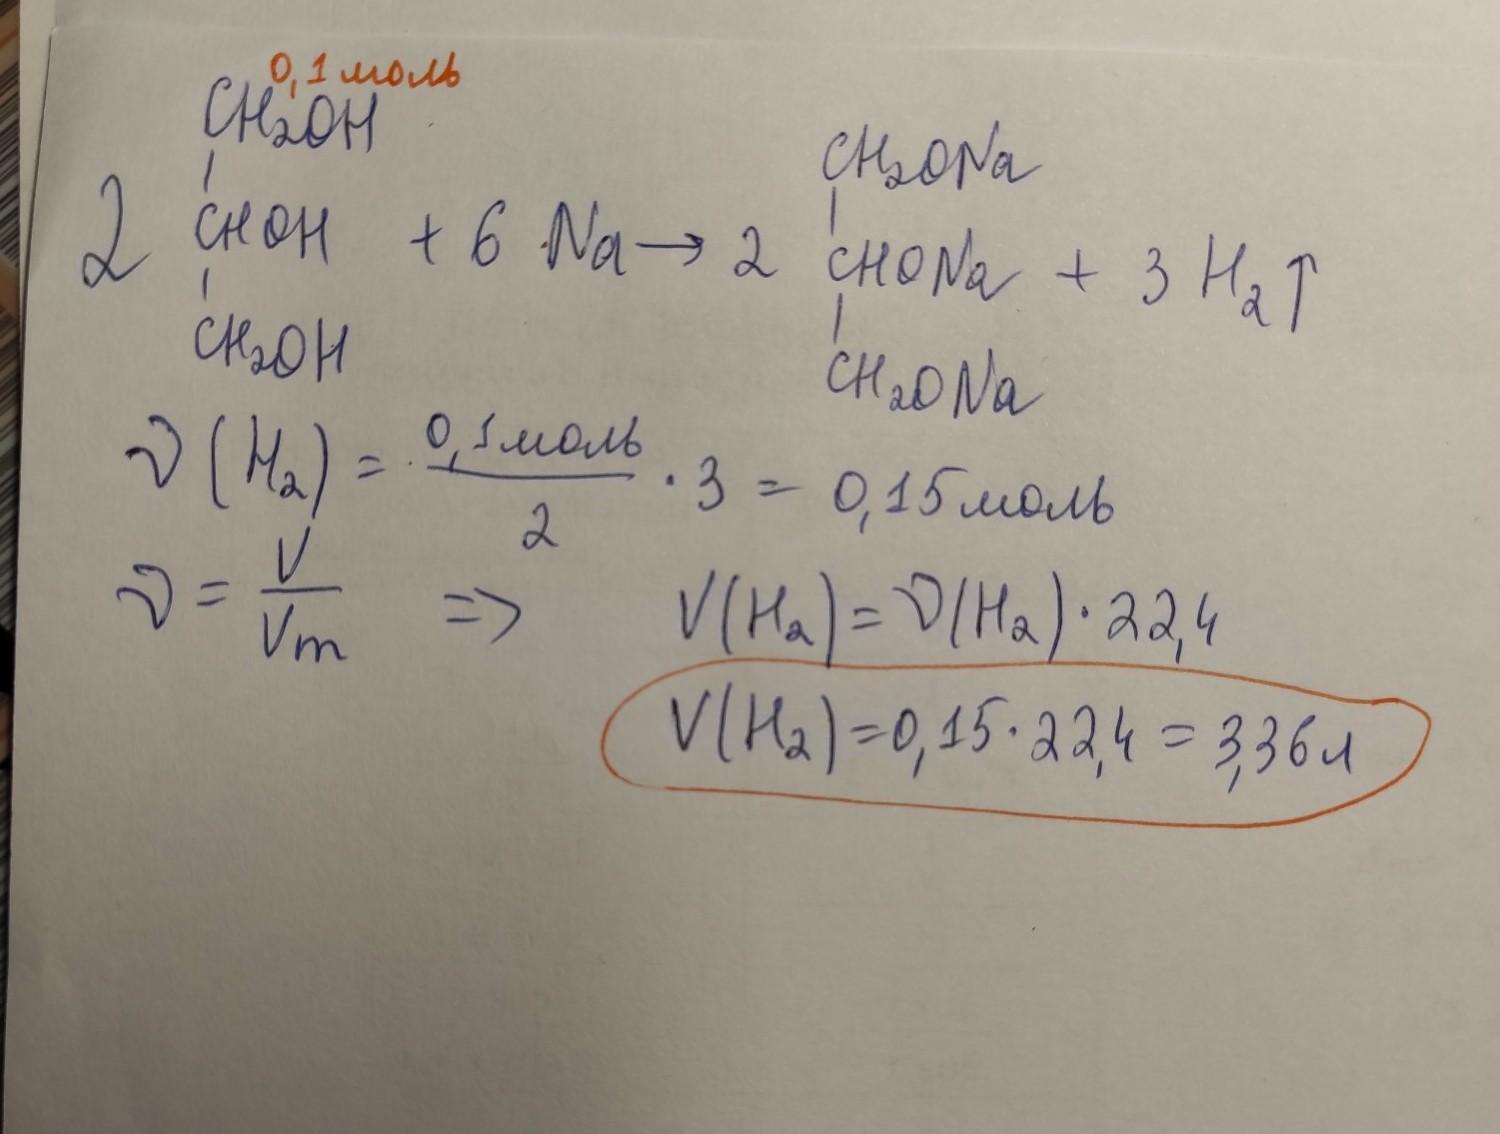 0,1 моль
CH₂OH CH₂ONa
2 CHOH + 6 Na → 2 CHONa + 3 H₂↑
CH₂OH CH₂ONa
ν (H₂) = 0,1 моль / 2 · 3 = 0,15 моль
ν = V / Vm => V(H₂) = ν(H₂) · 22,4
V(H₂) = 0,15 · 22,4 = 3,36 л